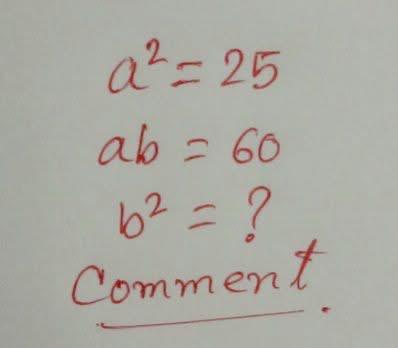 a² = 25
ab = 60
b² = ?
Comment.